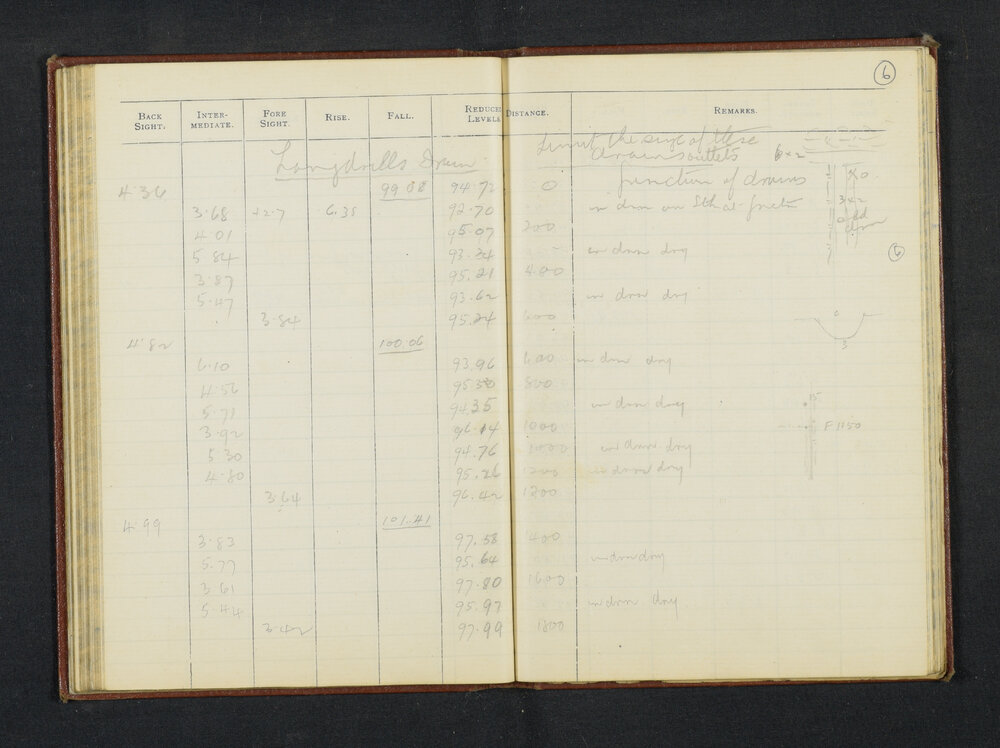 6
BACK SIGHT. INTER-MEDIATE. FORE SIGHT. RISE. FALL. REDUCED LEVELS DISTANCE. REMARKS.
Limit the size of these
Longdrills Drain drains outlets 6 x 2
4.36 99.08 94.72 0 junction of drains x 0
3.68 6.35 92.70 in drain on Sth at 3 x 2
4.01 95.07 200 old drain
5.84 93.24 in drain dry 6
3.87 95.21 400
5.47 93.62 in drain dry
3.84 95.24 600
4.82 100.06 3
6.10 93.96 600 in drain dry
4.56 95.50 800
5.71 94.35 in drain dry 15
3.92 96.14 1000 F 1150
5.30 94.76 in drain dry
4.80 95.26 1200 in drain dry
3.64 96.42 1200
4.99 101.41
3.83 97.58 400
5.77 95.64 in drain dry
3.61 97.80 1600
5.44 95.97 in drain dry
3.42 97.99 1800